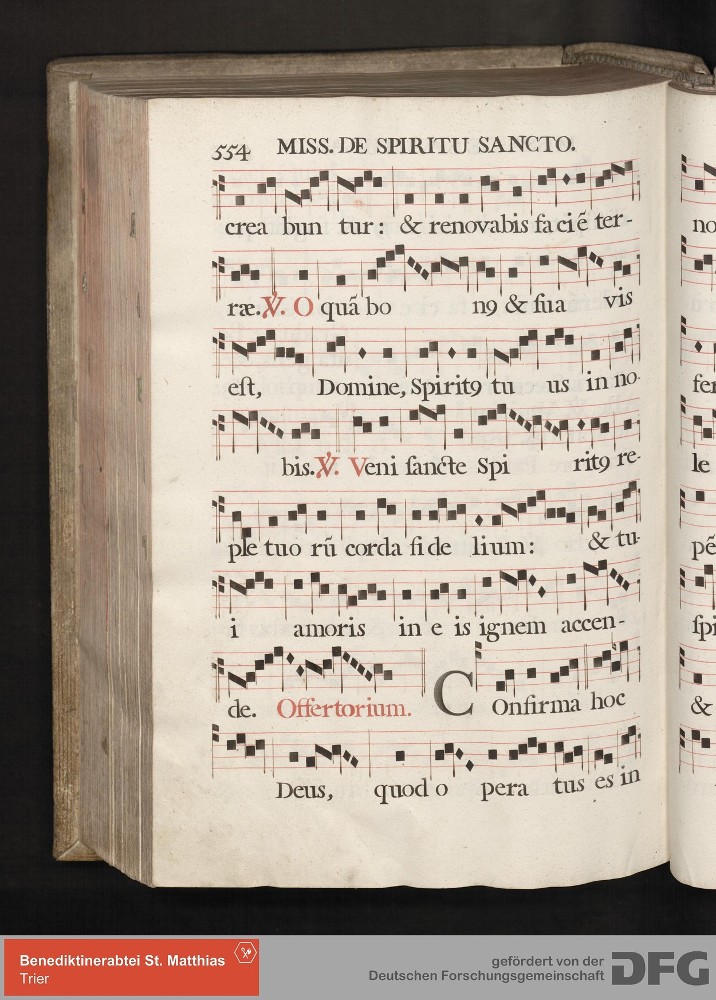 554 MISS. DE SPIRITU SANCTO.
crea bun tur: & renovabis faciẽ ter-
ræ. ℣. O quã bo n9 & sua vis
est, Domine, Spirit9 tu us in no-
bis. ℣. Veni sancte Spi rit9 re-
ple tuo rũ corda fide lium: & tu-
i amoris in e is ignem accen-
de. Offertorium. COnfirma hoc
Deus, quod o pera tus es in
no
fer
le
pẽ
spi
&
Benediktinerabtei St. Matthias
Trier
gefördert von der
Deutschen Forschungsgemeinschaft
DFG